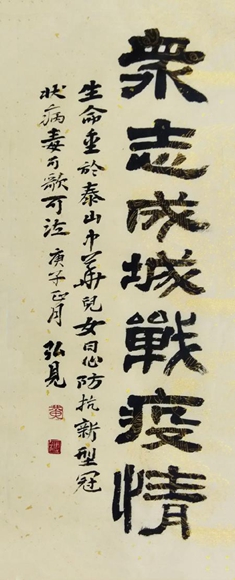 衆志成城戰疫情
生命重於泰山中華兒女同心防抗新型冠
狀病毒可歌可泣 庚子正月 弘見